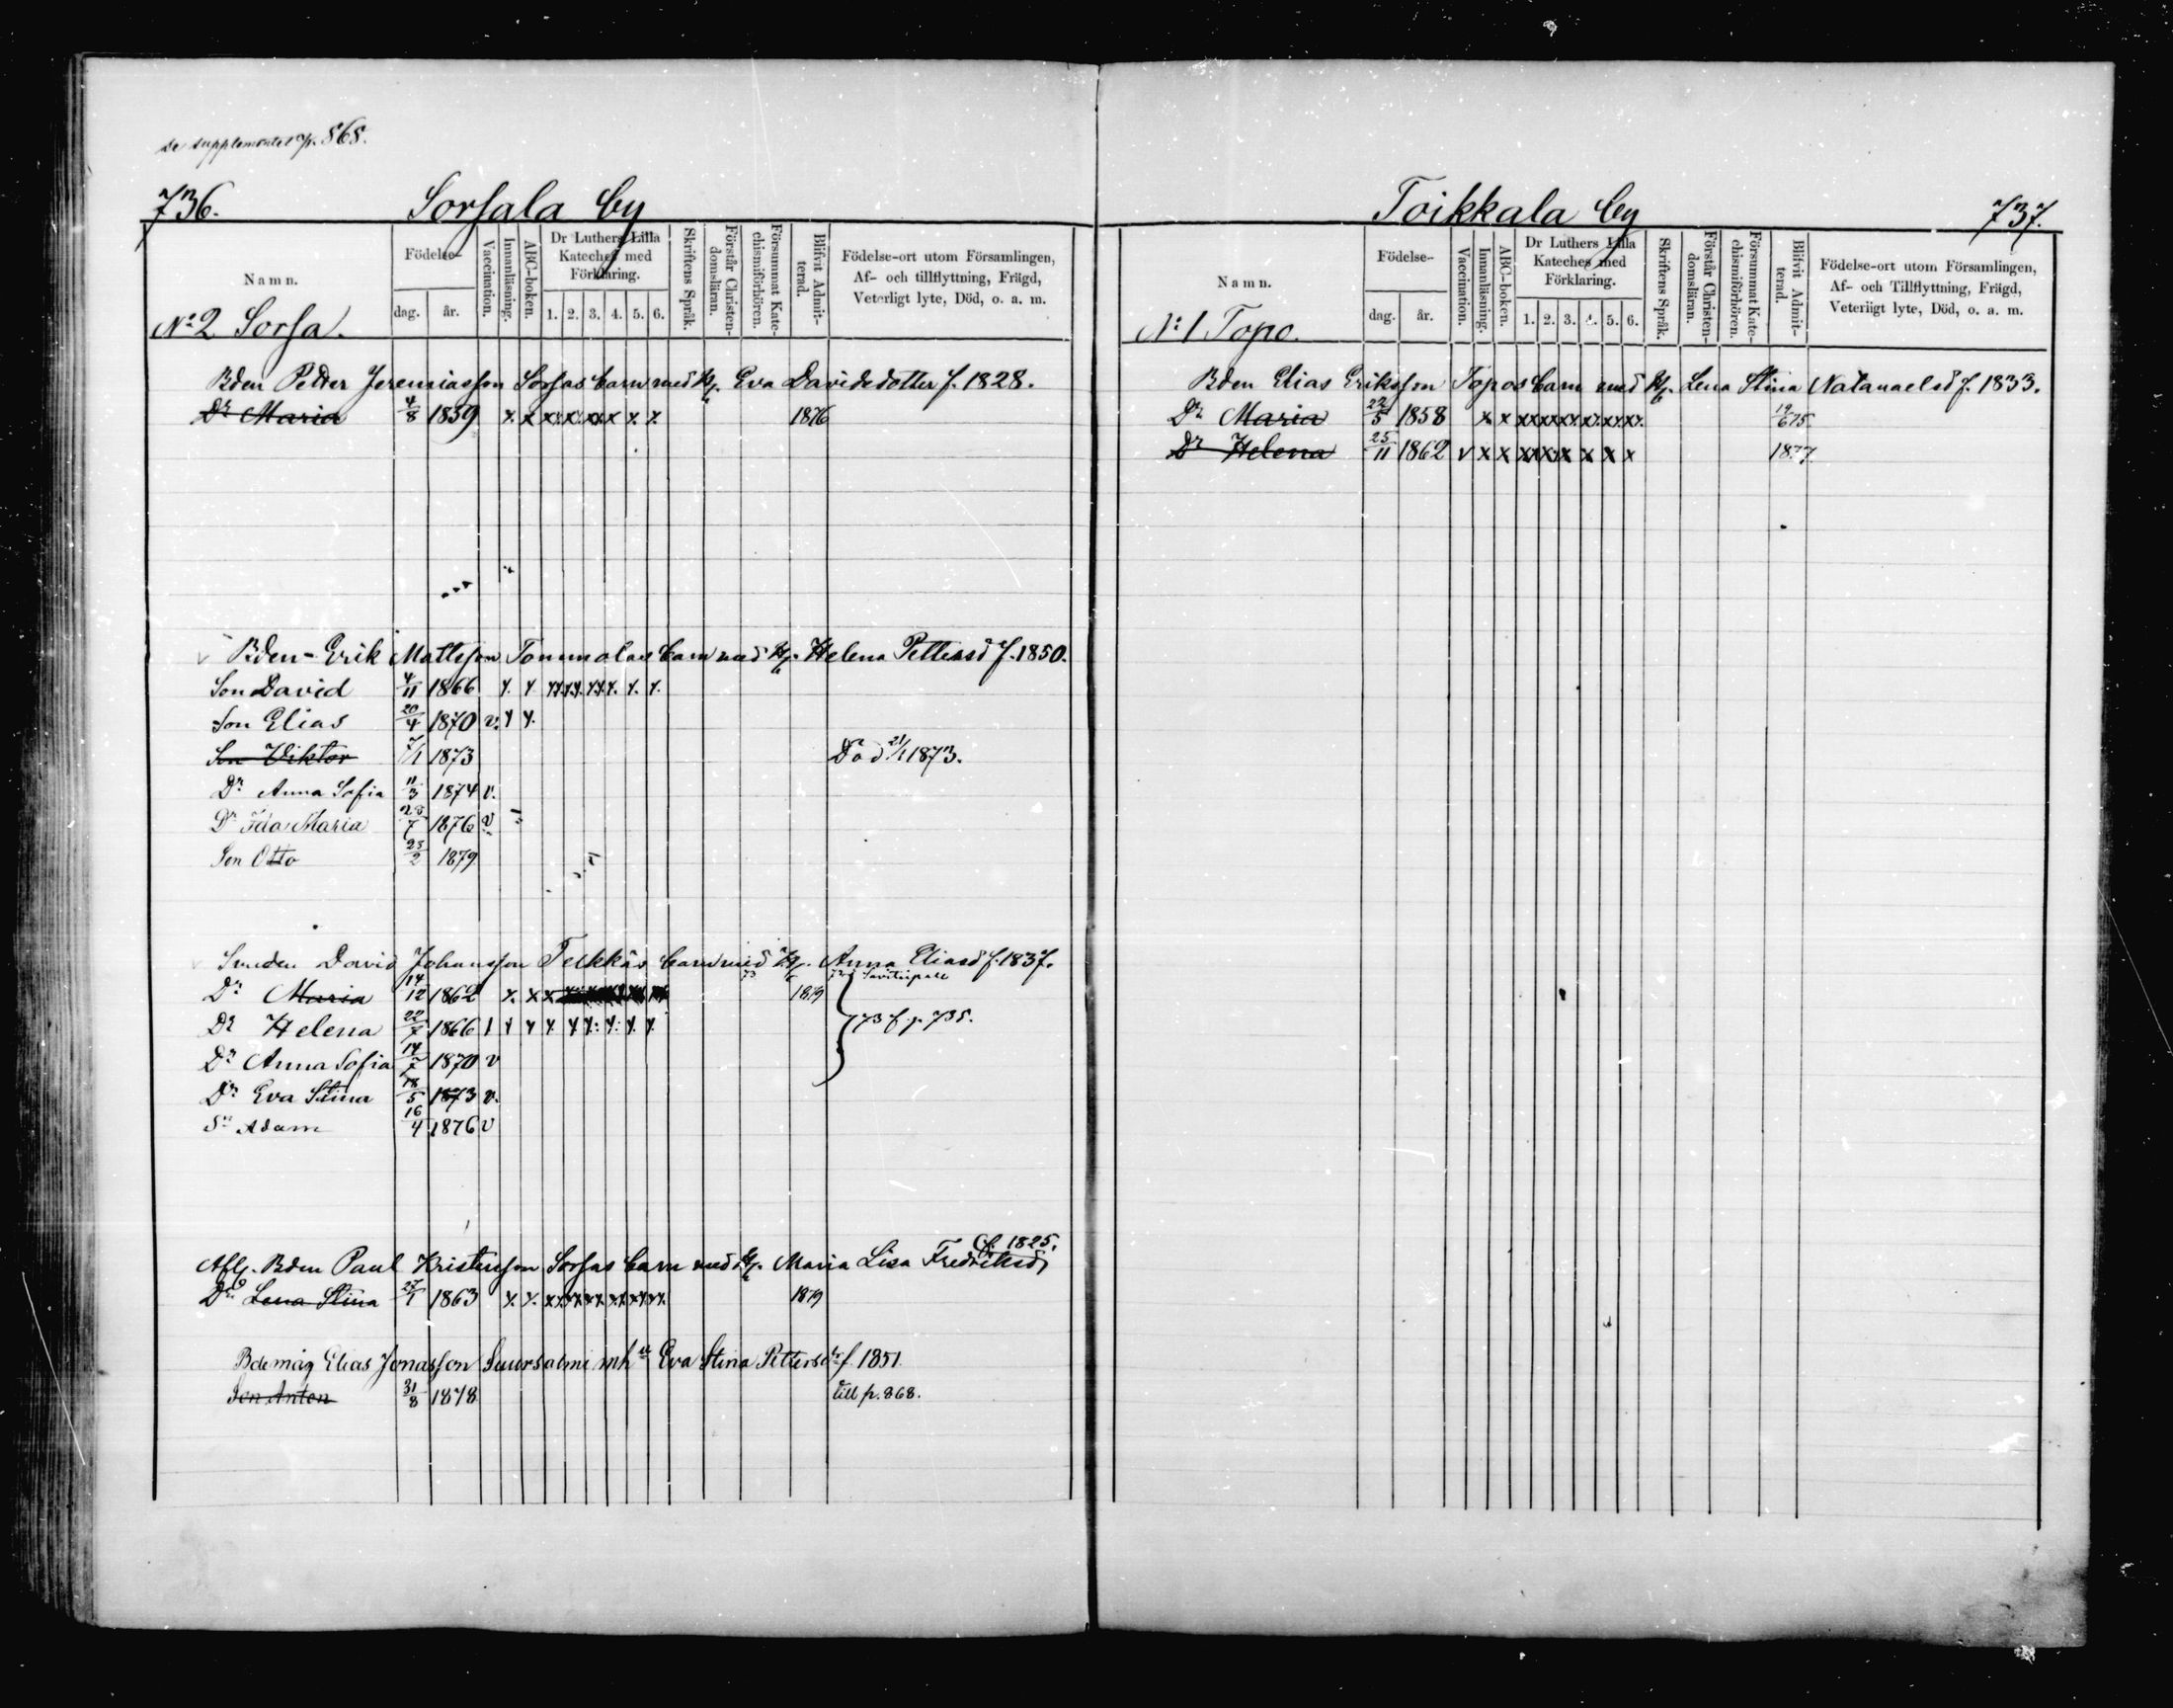 Se supplementet p. 868.
736. Sorsala by
Namn.
Födelse-
dag. år.
Vaccination.
Innanläsning.
ABC-boken.
Dr Luthers Lilla Kateches med Förklaring.
1. 2. 3. 4. 5. 6.
Skriftens Språk.
Förstår Christendomsläran.
Försummat Katechismiförhören.
Blifvit Admitterad.
Födelse-ort utom Församlingen,
Af- och tillflyttning, Frägd,
Veterligt lyte, Död, o. a. m.
No 2 Sorsa.
Bden Petter Jeremiasson Sorsas barn med H. Eva Davidsdotter f. 1828.
Dr Maria 4/8 1859 x x x x x x x x 1876
Bden Erik Mattsson Tommolas barn med H. Helena Pettersd f. 1850.
Son David 4/11 1866 x x x x x x x x
Son Elias 20/4 1870 v. x x
Son Viktor 7/1 1873 Död 21/1 1873.
Dr Anna Sofia 11/3 1874 v.
Dr Ida Maria 7 1876 v
Son Otto 25/2 1879
David Johansson barn med H. Anna Eliasd f. 1837.
73 Savitaipale
Dr Maria 14/12 1862 x x x 1879
Dr Helena 22/7 1866 1 x x x x x x x x 73 f. p. 735.
Dr Anna Sofia 14 1870 v
Dr Eva Stina 18/5 1873 v.
Sn Adam 16/4 1876 v
Afl. Bden Paul Kristersson Sorsas barn med H. Maria Lisa Fredriksd f. 1825.
Dr Lena Stina 27/1 1863 x x x x x x x x 1879
Bdemåg Elias Jonasson Suursalmi m h Eva Stina Pettersdr f. 1851
Son Anton 31/8 1878 till p. 868.
Toikkala by 737.
Namn.
Födelse-
dag. år.
Vaccination.
Innanläsning.
ABC-boken.
Dr Luthers Lilla Kateches med Förklaring.
1. 2. 3. 4. 5. 6.
Skriftens Språk.
Förstår Christendomsläran.
Försummat Katechismiförhören.
Blifvit Admitterad.
Födelse-ort utom Församlingen,
Af- och Tillflyttning, Frägd,
Veterligt lyte, Död, o. a. m.
No 1 Topo.
Bden Elias Eriksson Topos barn med H. Lena Stina Natanaelsd f. 1833.
Dr Maria 22/5 1858 x x x x x x x x 19/6 75
Dr Helena 25/11 1862 v x x x x x x x x 1877